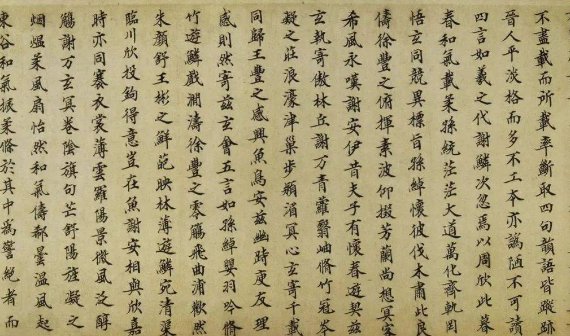 不盡載而所載率斷取四句韻語皆蹤跡
晉人平淡格而多不工本亦譌陋不可讀
四言如羲之代謝鱗次忽焉以周欣此暮
春和氣載柔孫統茫茫大道萬化齊軌罔
悟玄同競異標旨孫綽懷彼伐木肅此良
儔徐豐之俯揮素波仰掇芳蘭尚想冥客
希風永嘆謝安伊昔夫子有懷春遊契茲
玄執寄傲林丘謝万青蘿翳岫脩竹冠岑
凝之莊浪濠津巢步潁湄冥心玄寄千載
同歸王豐之感興魚鳥安茲幽時庾友理
感則然寄茲玄會五言如孫綽嬰羽吟脩
竹遊鱗戲瀾濤徐豐之零觴飛曲浦歡然
朱顏舒王彬之鮮葩映林薄遊鱗宛清渠
臨川欣投鈎得意豈在魚謝安相與欣嘉
時亦同褰衣裳薄雲羅陽景微風泛醇
觴謝万玄冥卷陰旗句芒舒陽旌凝之
烟熅柔風扇怡然和氣儔郗曇溫風起
東谷和氣振柔條於其中為警絕者而